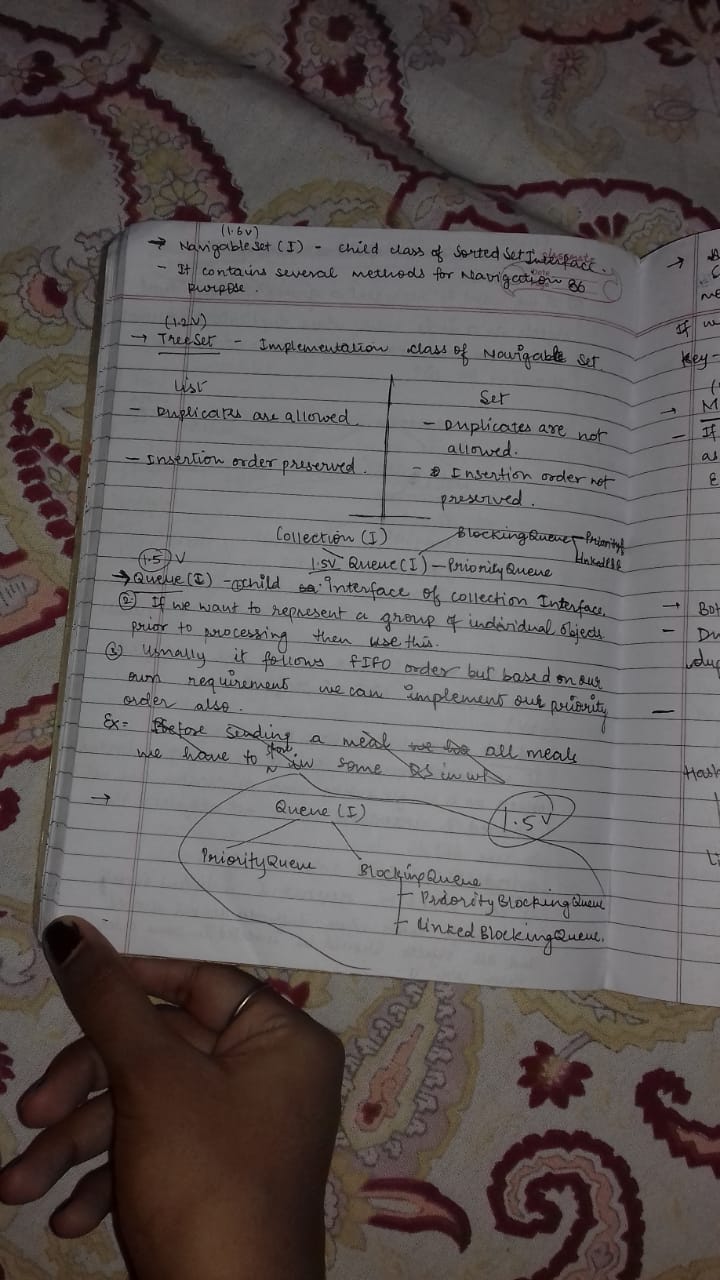 (1.6v)
→ NavigableSet (I) - child class of Sorted Set Interface.
- It contains several methods for Navigation
purpose.
(1.2V)
→ TreeSet - Implementation class of Navigable Set.
List
Set
- Duplicates are allowed.
- Duplicates are not
allowed.
- Insertion order preserved.
- Insertion order not
preserved.
Collection (I)
BlockingQueue
1.5V Queue (I) - PriorityQueue
1.5 V
→ Queue (I) - ① child Interface of collection Interface.
② If we want to represent a group of individual objects
prior to processing then use this.
③ Usually it follows FIFO order but based on our
own requirement we can implement our priority
order also.
Ex= Before sending a meal all meals
we have to store in some DS in
→
Queue (I)
1.5V
PriorityQueue
BlockingQueue
PriorityBlockingQueue
LinkedBlockingQueue.
→
If
Key-
→ M
- If
as
E
→ Bot
- Du
dup
Hash
Li